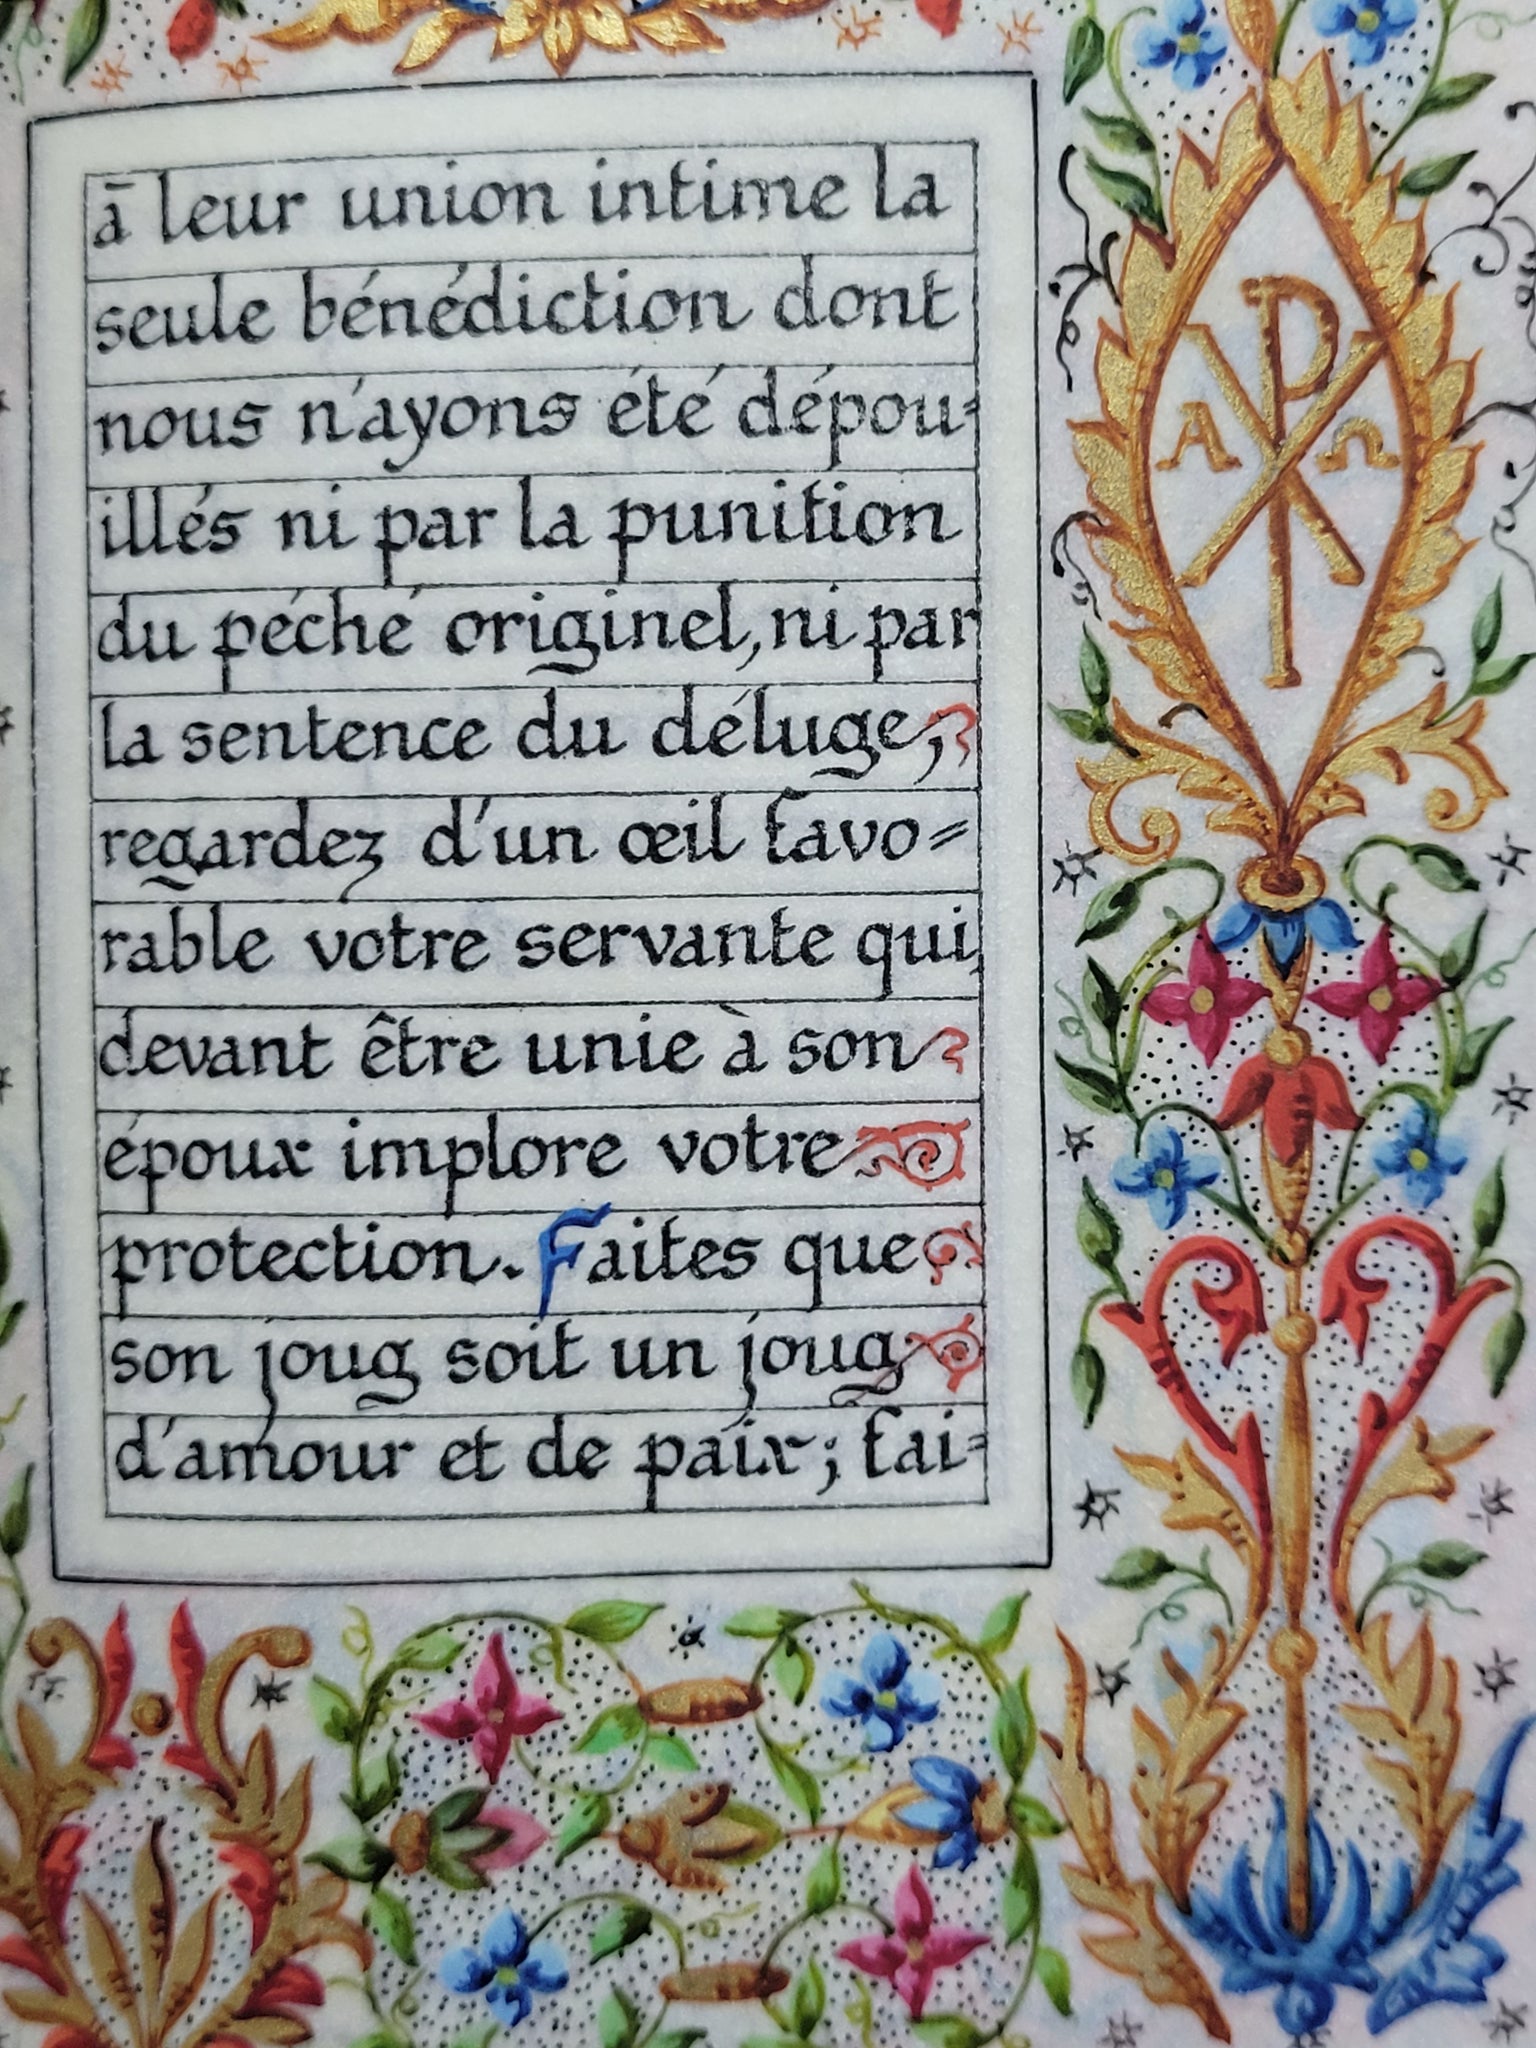 ā leur union intime la
seule bénédiction dont
nous n'ayons été dépou=
illés ni par la punition
du péché originel, ni par
la sentence du déluge,
regardez d'un œil favo=
rable votre servante qui,
devant être unie à son
époux implore votre
protection. Faites que
son joug soit un joug
d'amour et de paix; fai=
Α Ω